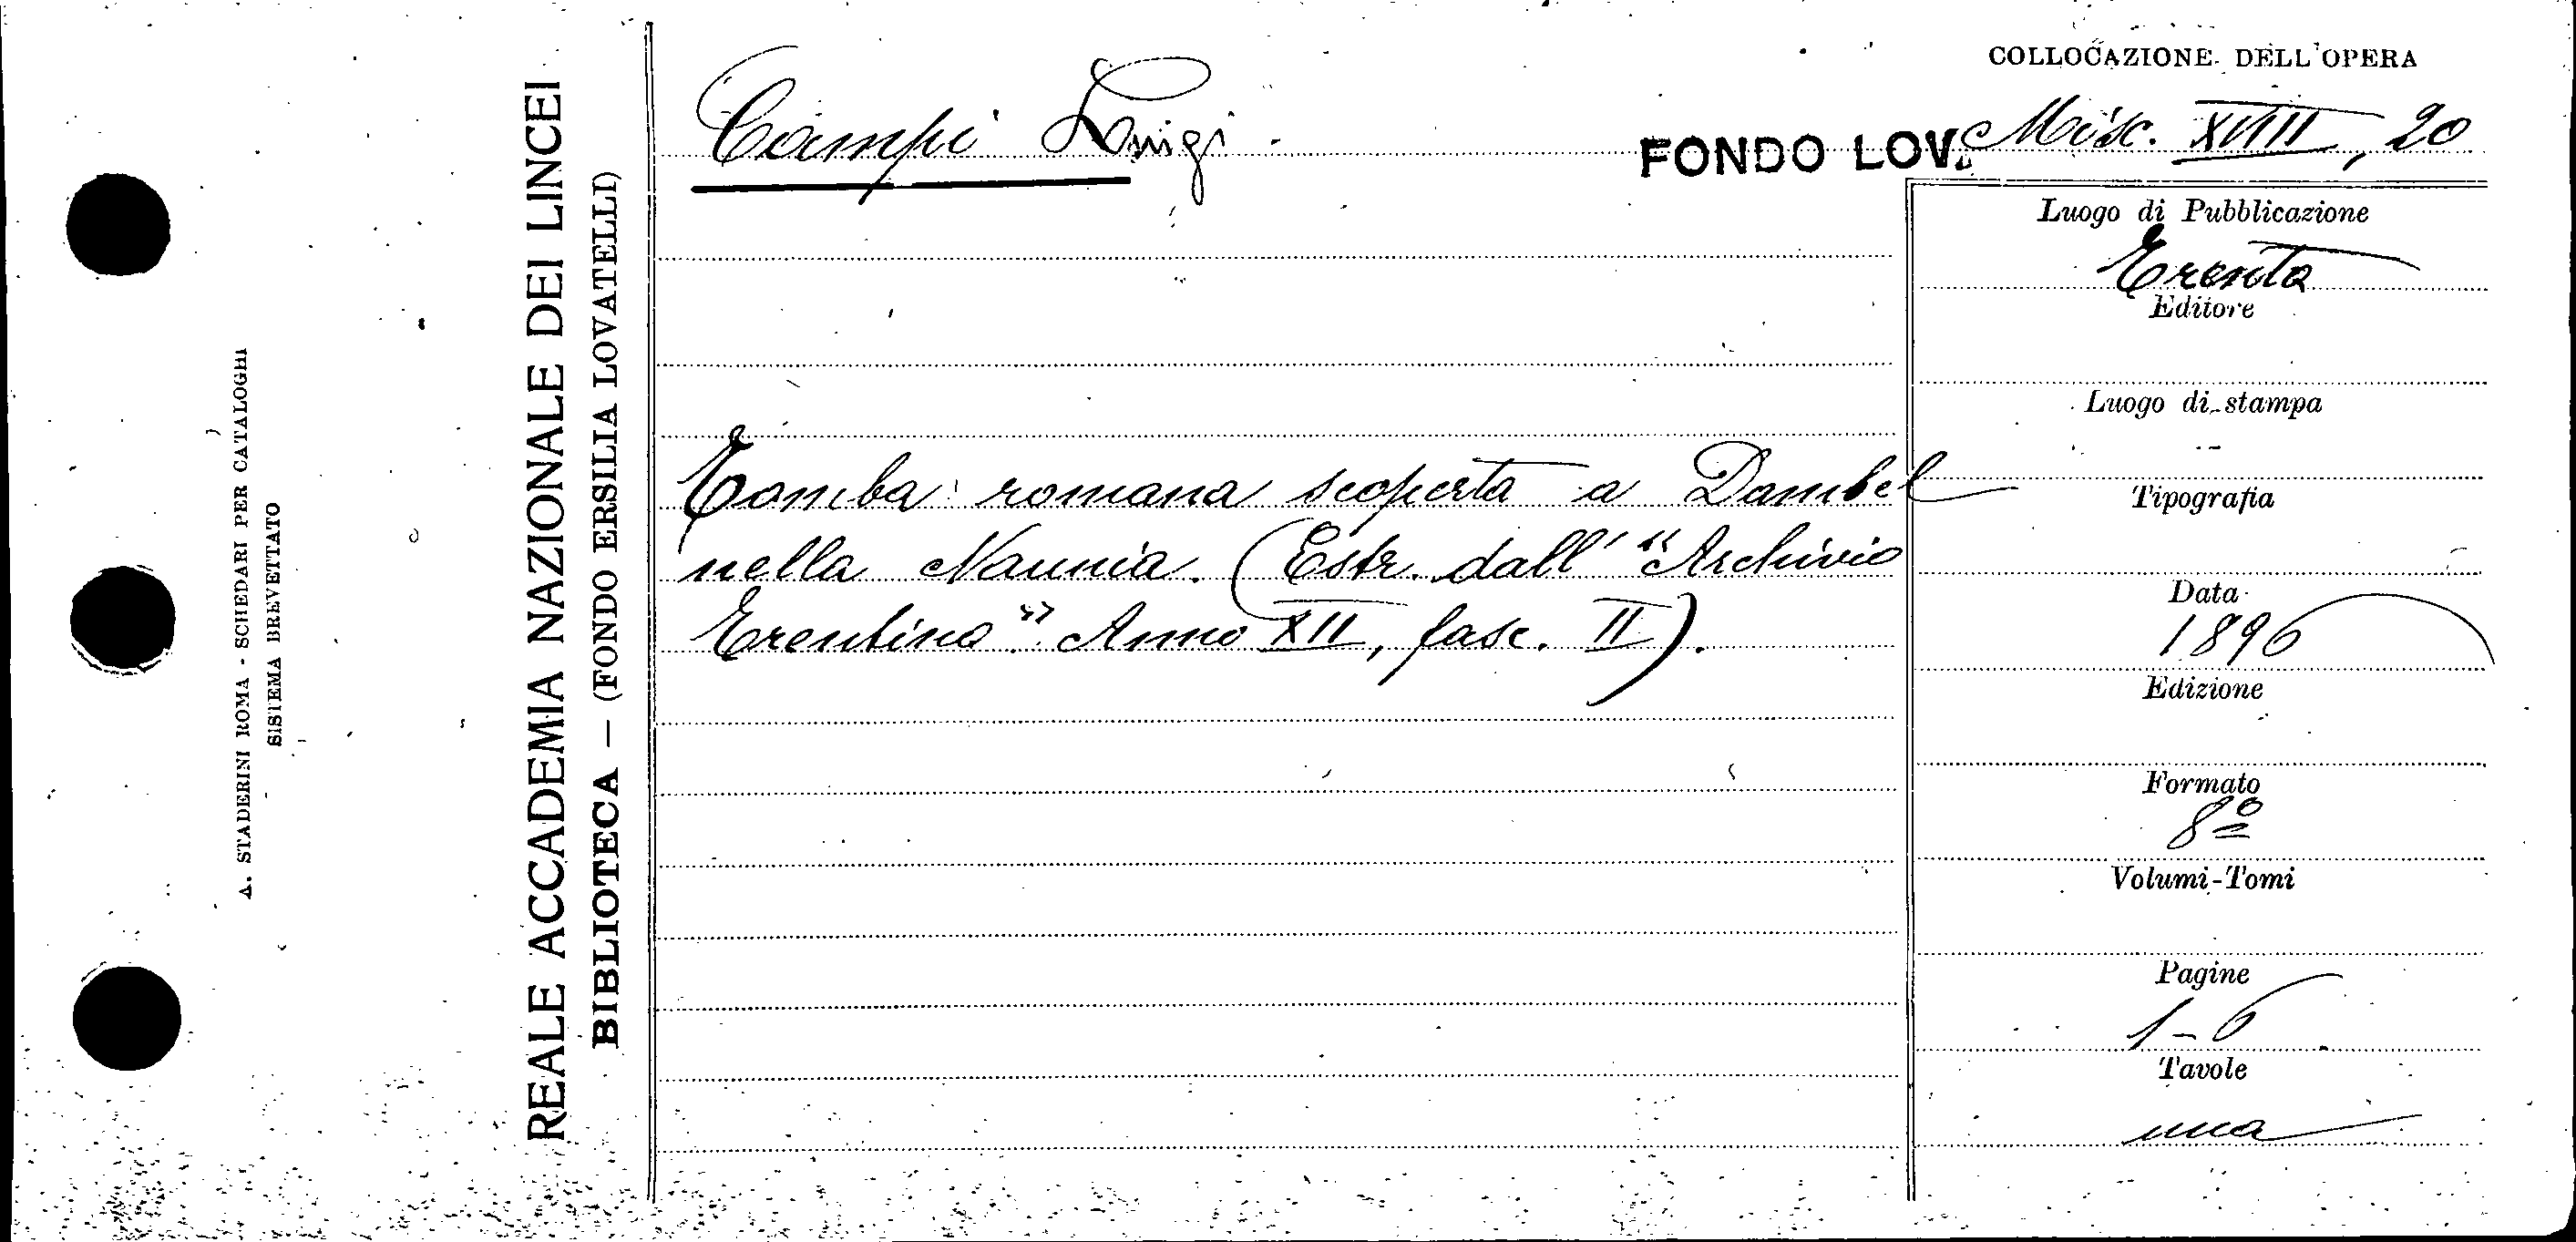 A. STADERINI ROMA - SCHEDARI PER CATALOGHI
SISTEMA BREVETTATO
REALE ACCADEMIA NAZIONALE DEI LINCEI
BIBLIOTECA — (FONDO ERSILIA LOVATELLI)
COLLOCAZIONE DELL'OPERA
Campi Luigi.
FONDO LOV. Misc. XVIII, 20
Tomba romana scoperta a Dambel
nella Naunia. (Estr. dall' "Archivio
Trentino" Anno XII, fasc. II).
Luogo di Pubblicazione
Trento
Editore
Luogo di stampa
Tipografia
Data
1896
Edizione
Formato
8º
Volumi-Tomi
Pagine
1-6
Tavole
una